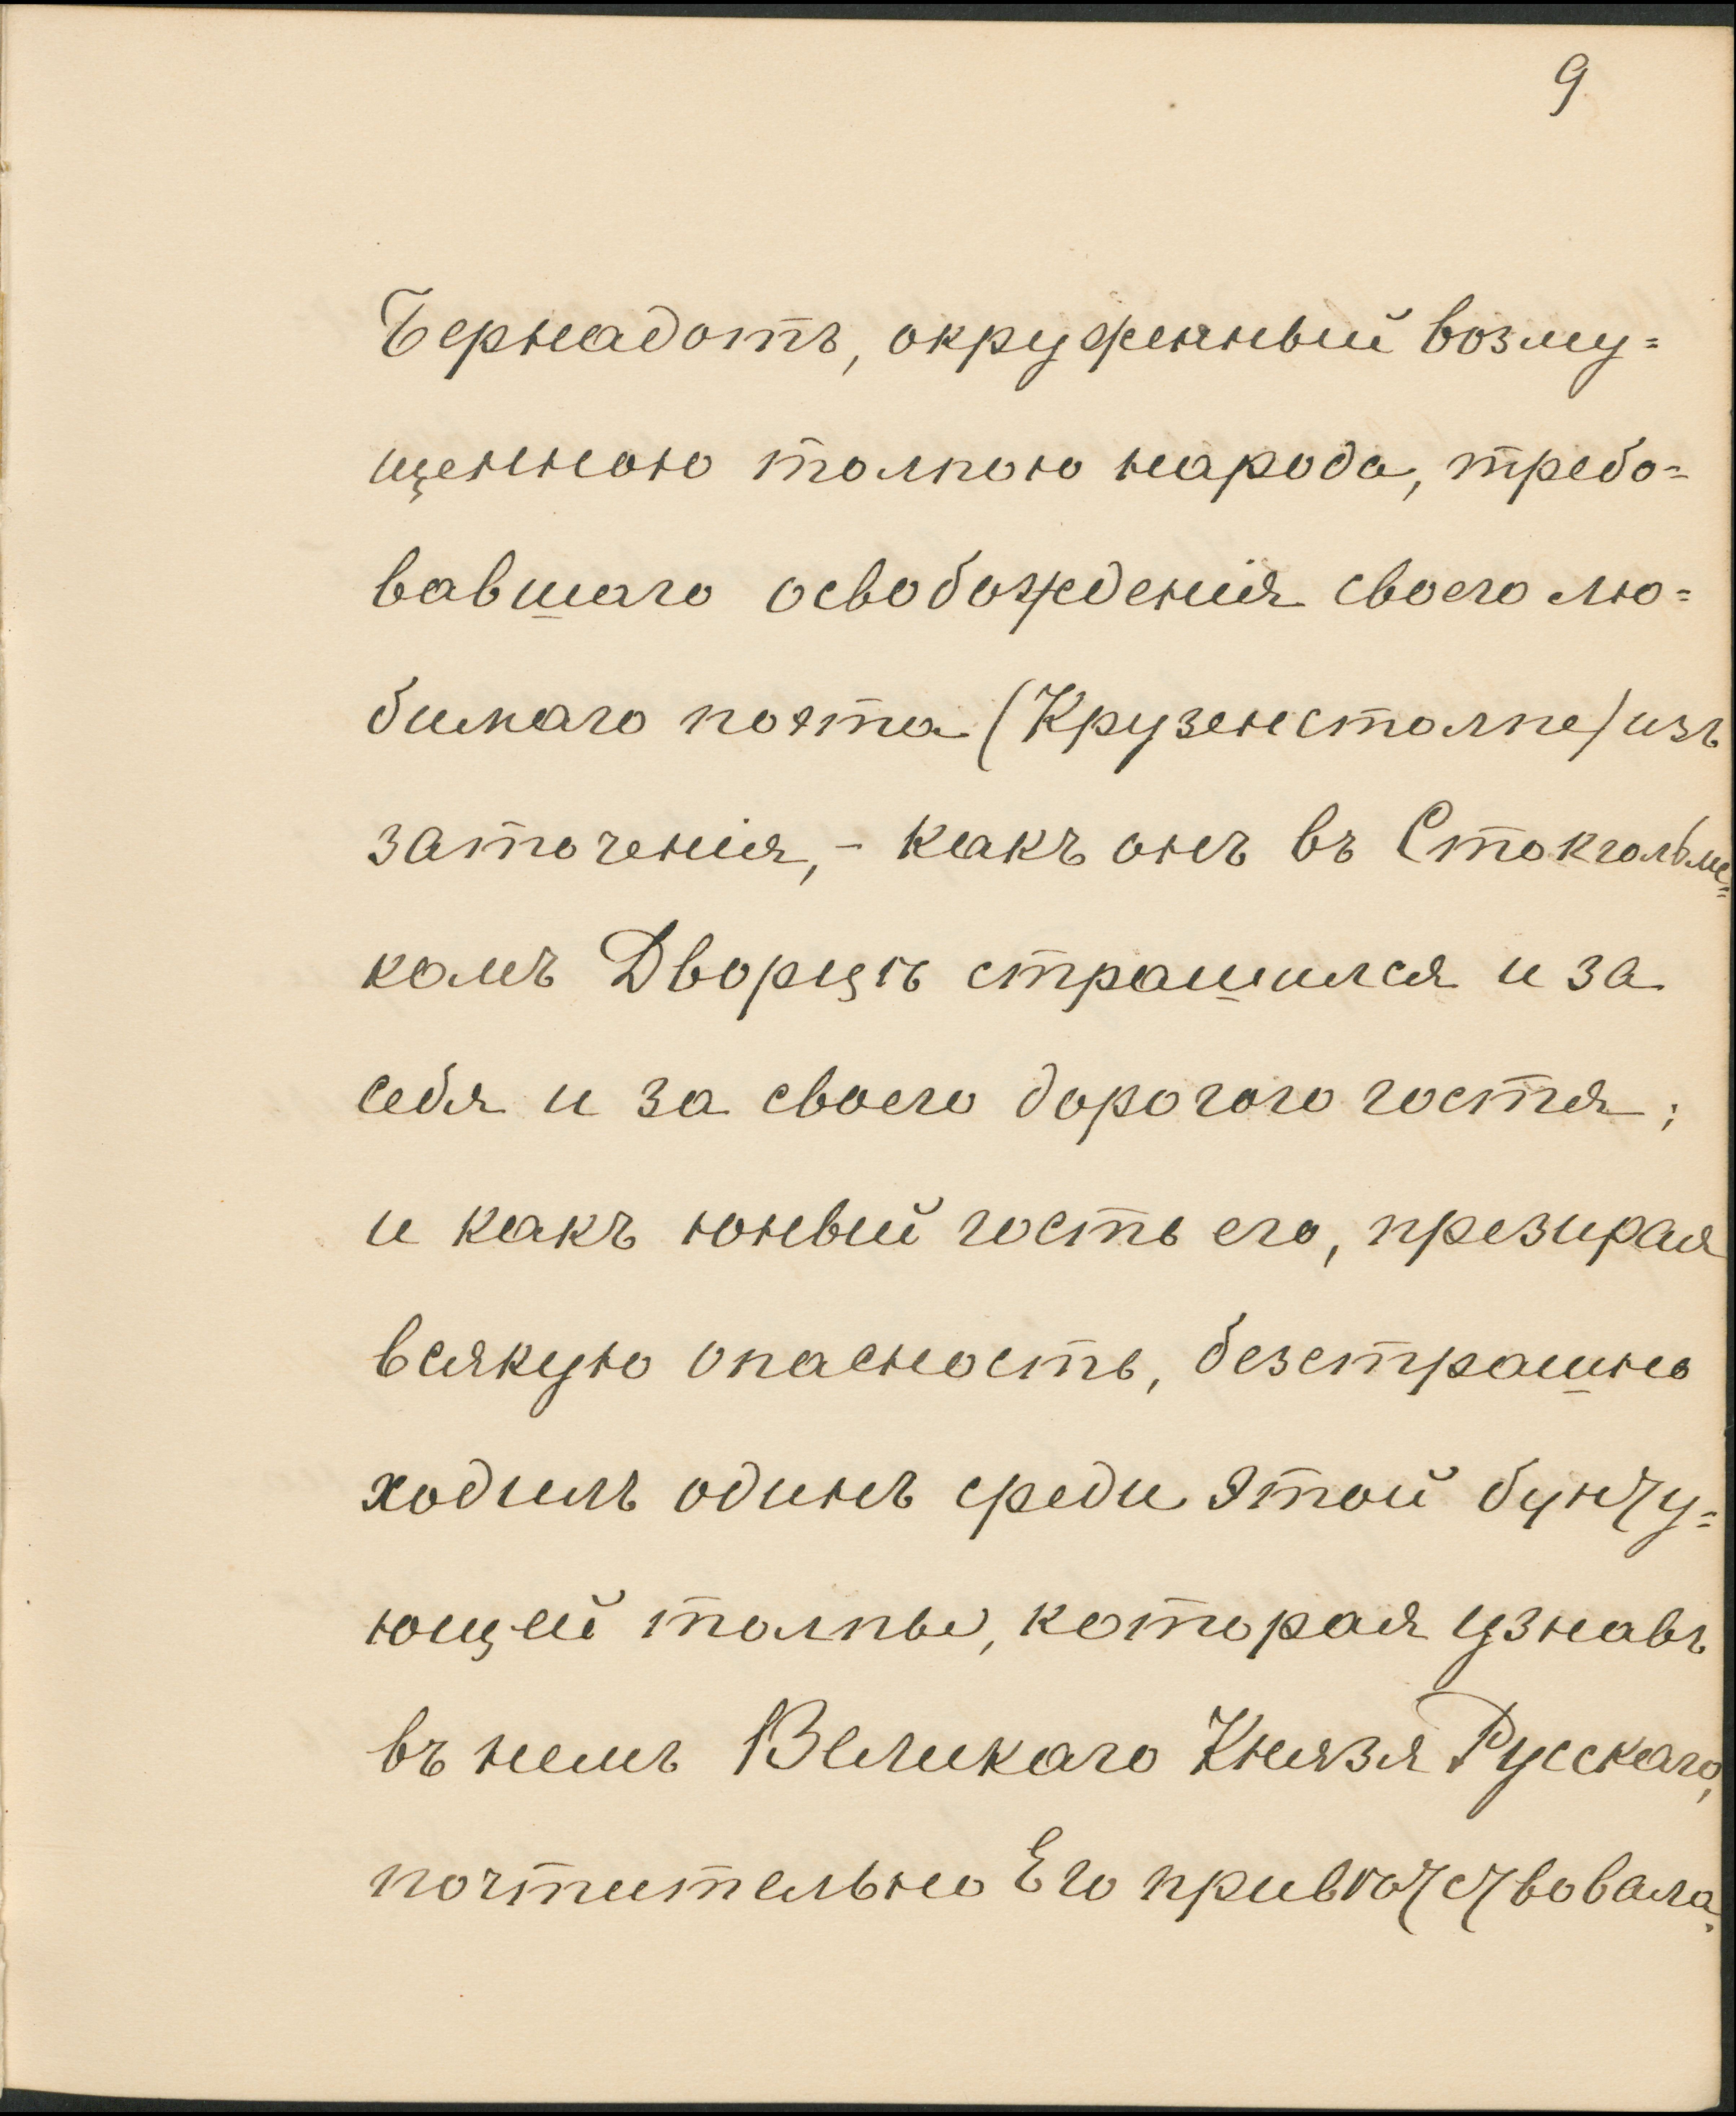 9
Бернадотъ, окруженный возму=
щенною толпою народа, требо=
вавшаго освобожденія своего лю=
бимаго поэта (Крузенстолпе) изъ
заточенія, - какъ онъ въ Стокгольмс=
комъ Дворцѣ страшился и за
себя и за своего дорогого гостя;
и какъ юный гость его, презирая
всякую опасность, безстрашно
ходилъ одинъ среди этой бунту=
ющей толпы, которая узнавъ
въ немъ Великаго Князя Русскаго,
почтительно Его привѣтствовала.